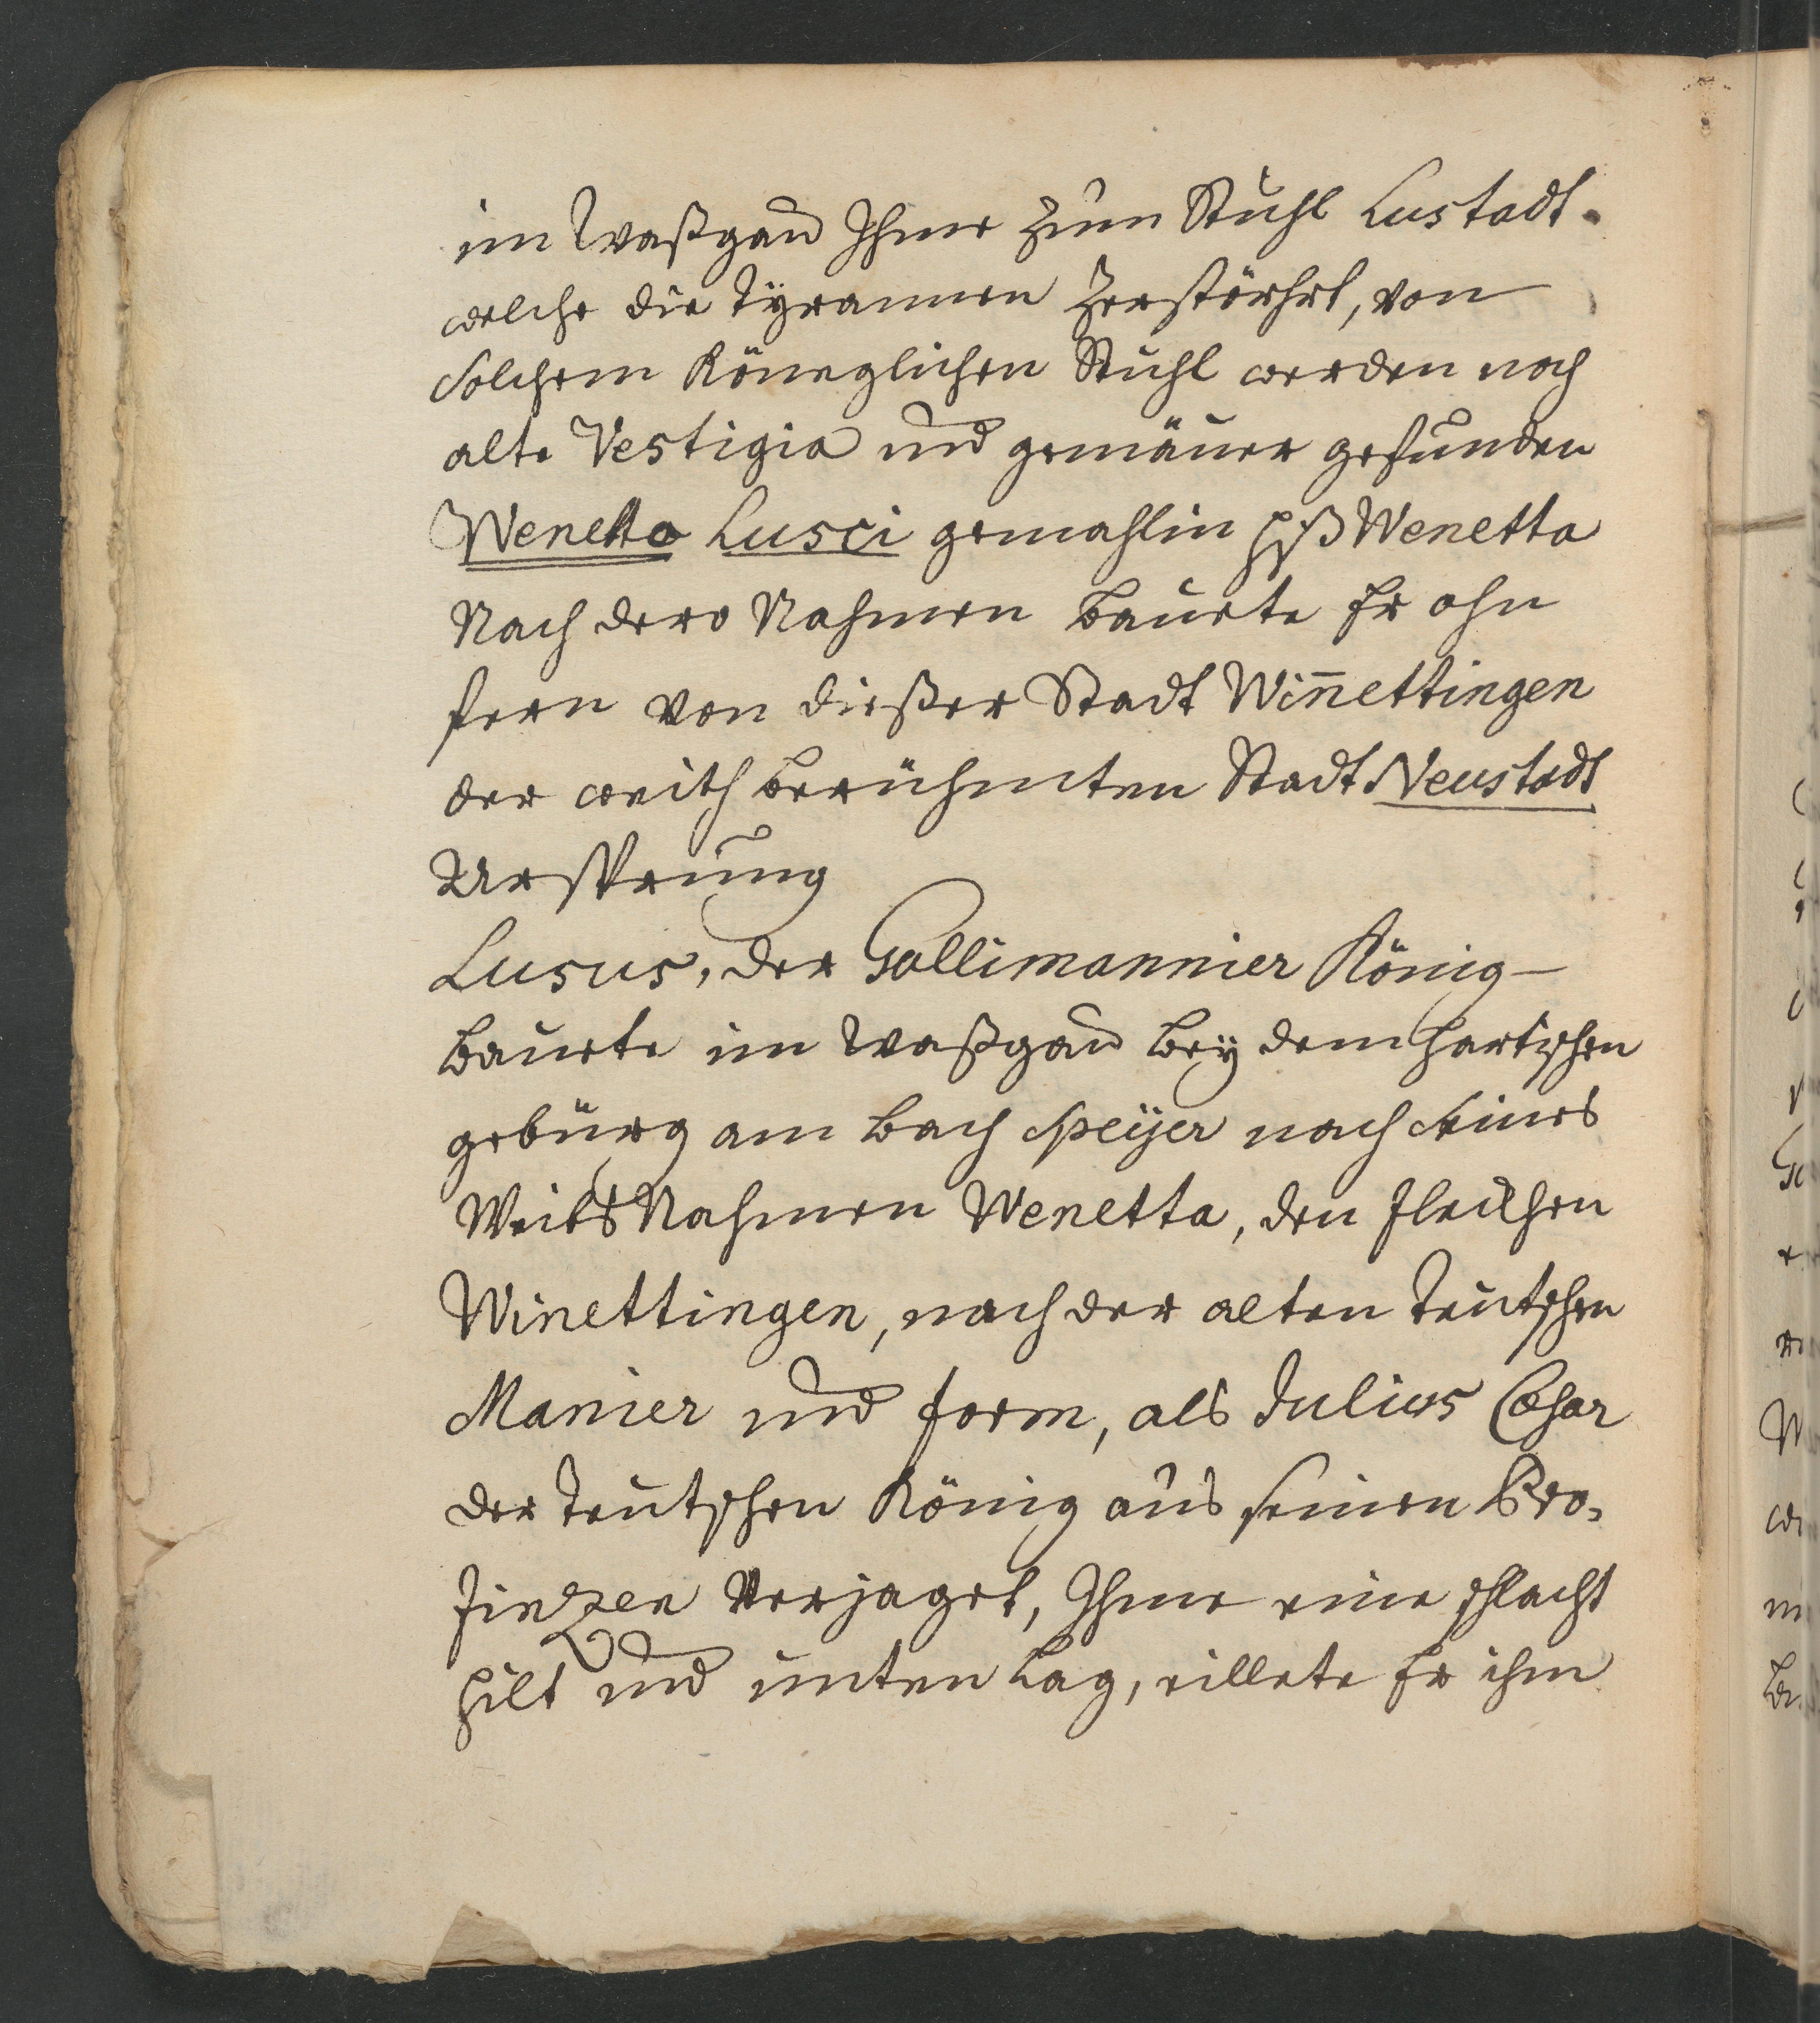 im Waßgau Ihme zum Stuhl Lustadt.
welche die Tÿrannen zerstöhrt, von
solchem Köneglichen Stuhl werden noch
alte Vestigia und gemäuer gefunden
Wenetta Lusci gemahlin hiß Wenetta
Nach dero Nahmen bauete Er ohn
fern von dießer Stadt Win̄ettingen
der weith berühmten Stadt Neustadt
Ursprung
Lusus, der Gallimannier König
bauete im Waßgau beÿ dem hartischen
gebürg am bach speÿer nach seines
Weibs Nahmen Wenetta, den flecken
Winettingen, nach der alten teutschen
Manier und form, als Julius Cæsar
der teutschen König aus seinen Pro-
finzen verjaget, Ihme eine schlacht
hilt und unten lag, eillete Er ihm